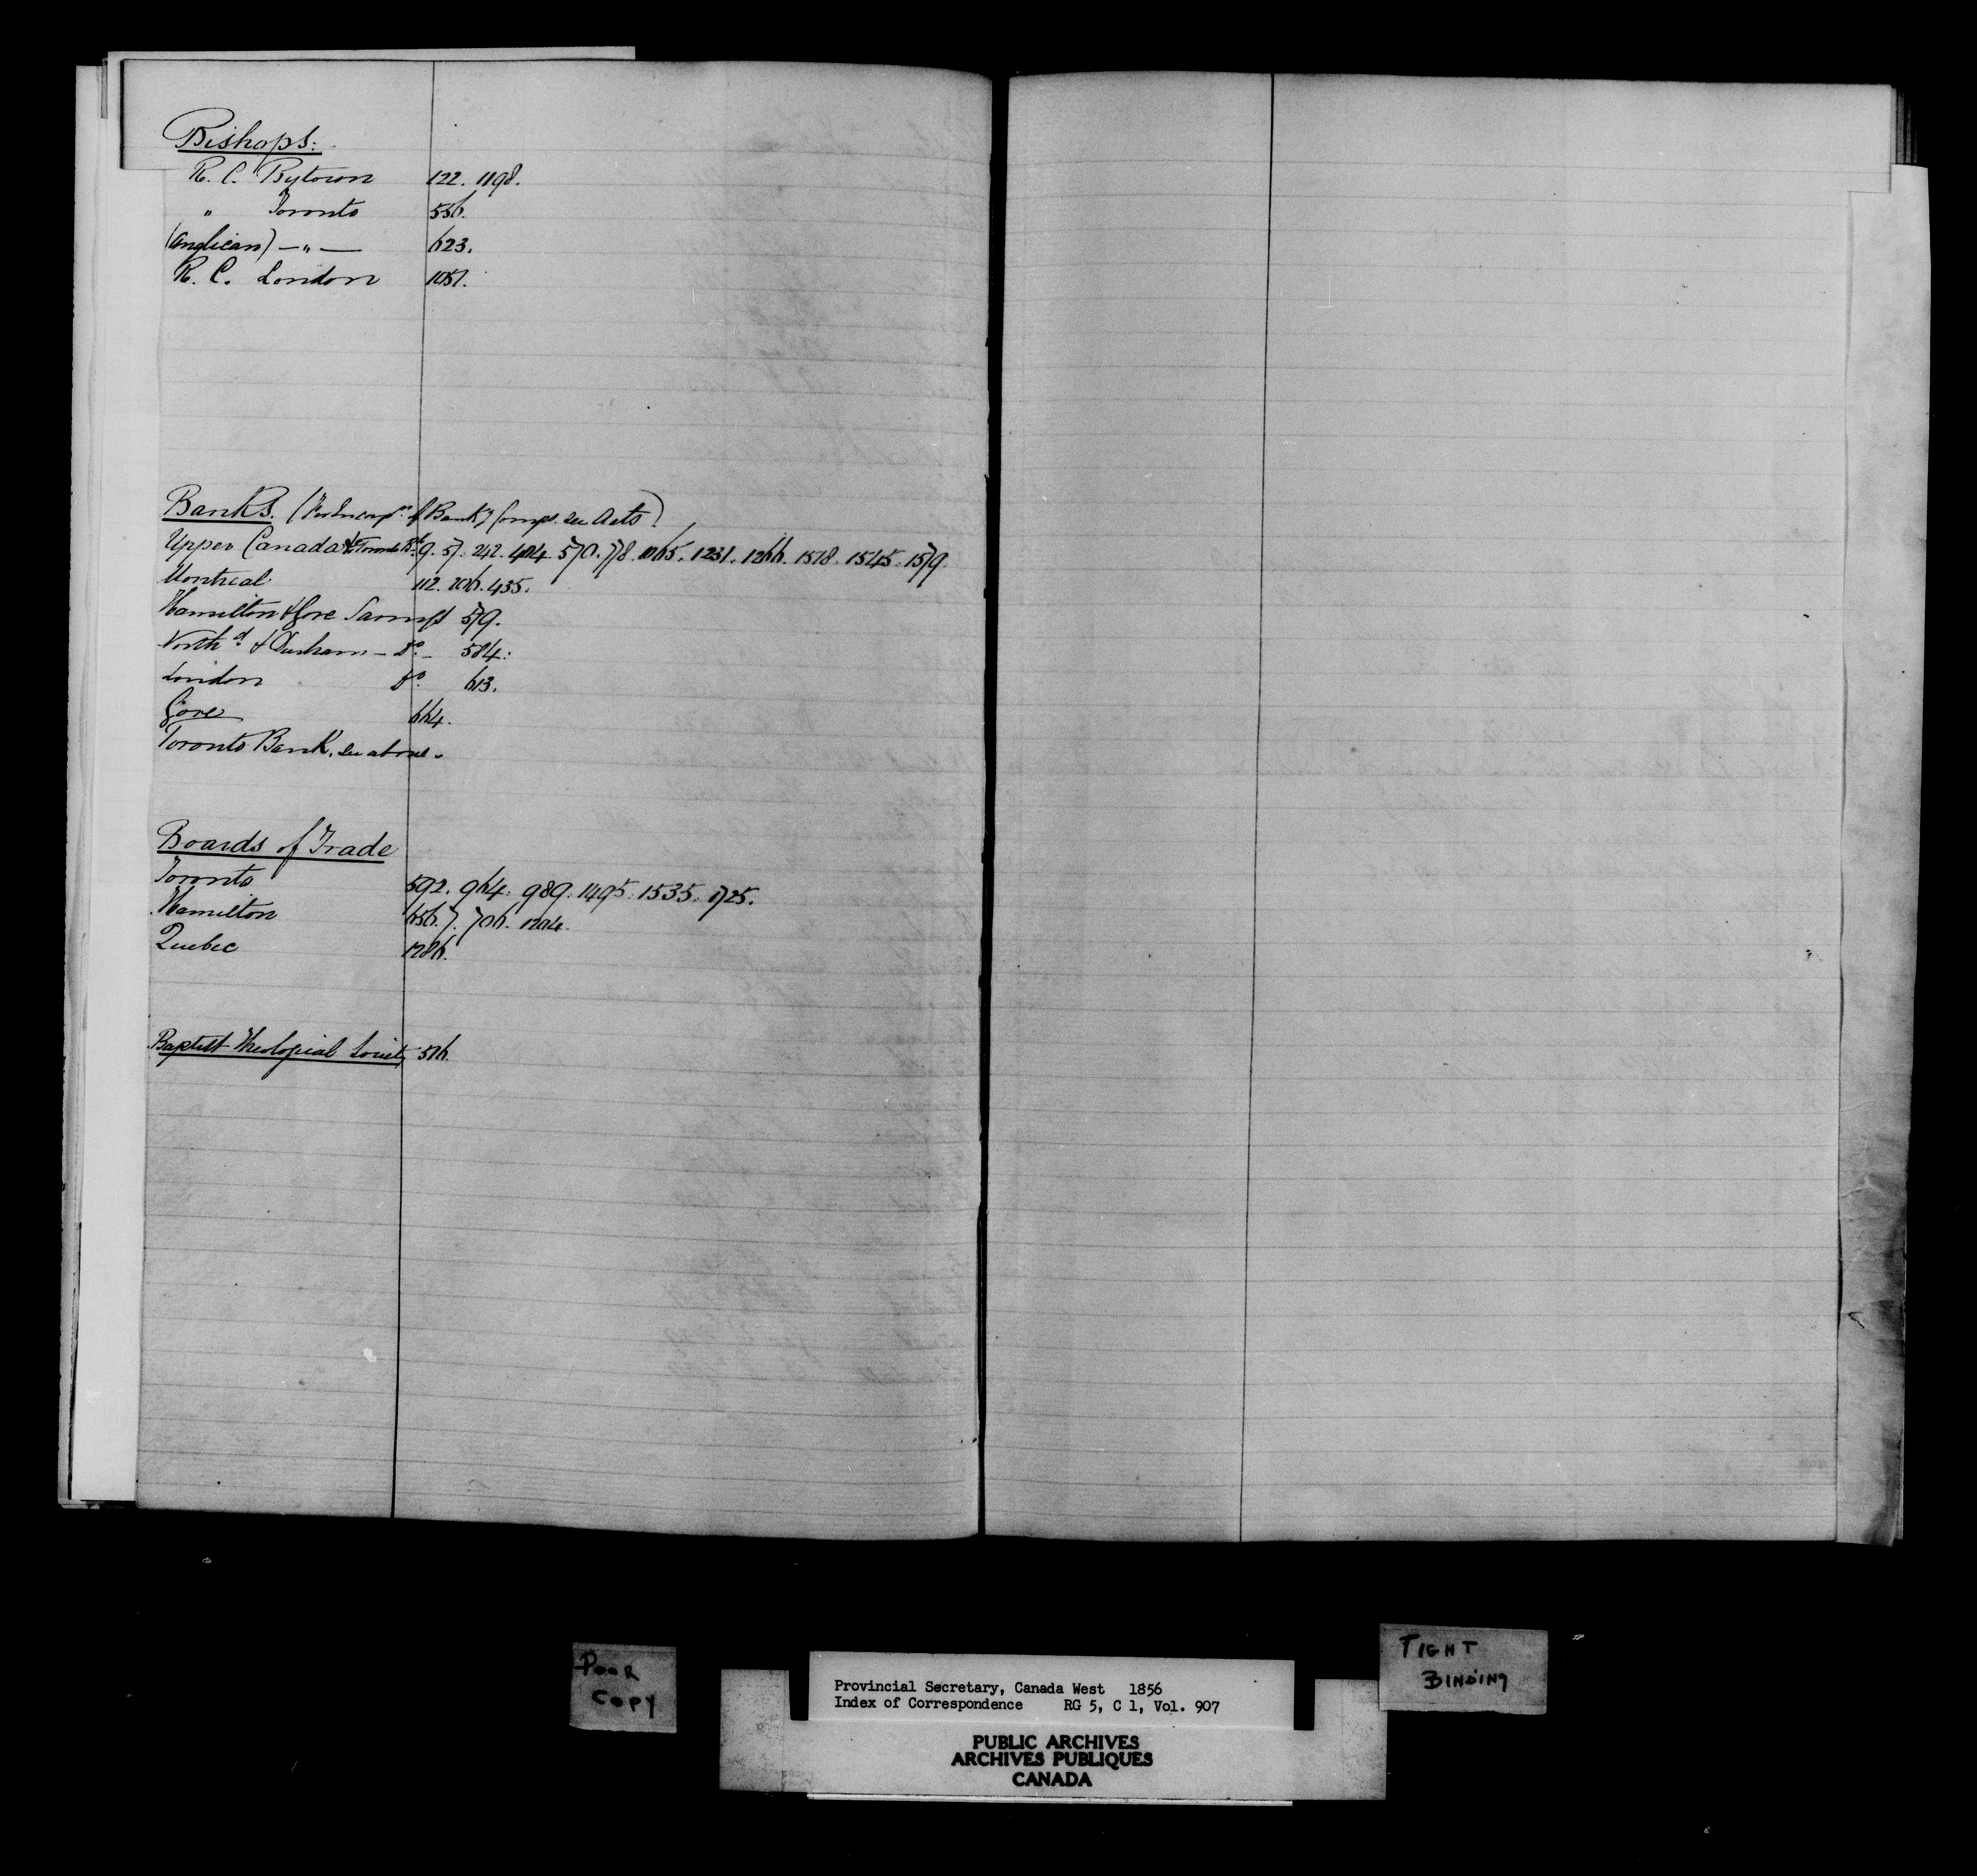 Bishops:
R. C. Bytown 122. 1198.
" Toronto 556.
(Anglican) — " — 623.
R. C. London 1051.
Banks. (For Incorpn. of Bankg Comps. see Acts)
Upper Canada & Toronto Bk. 9. 57. 242. 404. 570. 778. 1065. 1231. 1266. 1518. 1545. 1579.
Montreal 112. 206. 435.
Hamilton & Gore Savings 579.
Northd. & Durham — Do. — 584.
London Do. 613.
Gore 664.
Toronto Bank, see above.
Boards of Trade
Toronto 592. 964. 989. 1495. 1535. 1725.
Hamilton 656.7. 706. 1204.
Quebec 1286.
Baptist Theological Society 516.
POOR
COPY
TIGHT
BINDING
Provincial Secretary, Canada West 1856
Index of Correspondence RG 5, C 1, Vol. 907
PUBLIC ARCHIVES
ARCHIVES PUBLIQUES
CANADA